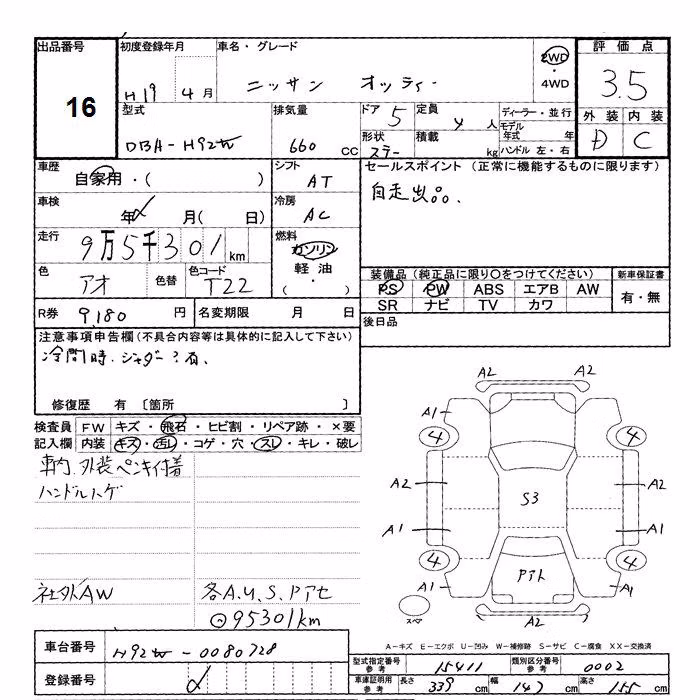 出品番号 初度登録年月 車名・グレード 評価点
16 H19 4月 ニッサン オッティ 2WD 4WD 3.5
型式 排気量 ドア 5 定員 4人 ディーラー・並行 外装 内装
DBA-H92W 660 cc 形状 ステー 積載 kg モデル年式 年 ハンドル 左・右 D C
車歴 自家用・( ) シフト AT セールスポイント(正常に機能するものに限ります)
車検 年 月( 日) 冷房 AC 自走出品。
走行 9万5千301km 燃料 ガソリン 軽油 ・( )
色 アオ 色替 色コード T22
装備品(純正品に限り○をつけてください) 新車保証書
PS PW ABS エアB AW 有・無
SR ナビ TV カワ
R券 9,180円 名変期限 月 日 後日品
注意事項申告欄(不具合内容等は具体的に記入して下さい)
冷間時.ジャダー?有.
修復歴 有 〔箇所 〕
検査員 FW キズ・飛石・ヒビ割・リペア跡・×要
記入欄 内装 キズ・汚レ・コゲ・穴・スレ・キレ・破レ
車内外装ペンキ付着
ハンドルハゲ
社外AW 各A.U.S.Pアセ
◎95301km
A2 A2
A1 A1
4 4
A2 S3 A2
A1 A1
4 4
A1 Pアト A1
スペア A2
A-キズ E-エクボ U-凹み W-補修跡 S-サビ C-腐食 XX-交換済
車台番号 H92W-0080728
登録番号
型式指定番号 参考 15411 類別区分番号 参考 0002
車庫証明用 参考 長さ 339cm 幅 147cm 高さ 155cm